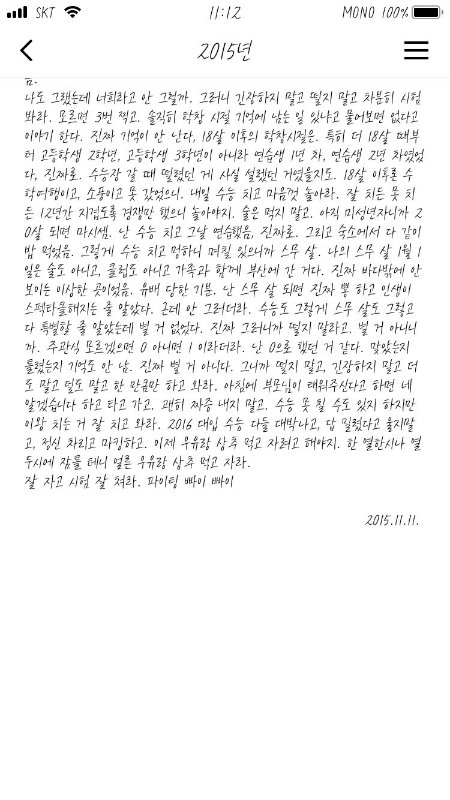 SKT 11:12 MONO 100%
2015년
음.
나도 그랬는데 너희라고 안 그럴까. 그러니 긴장하지 말고 떨지 말고 차분히 시험
봐라. 모르면 3번 찍고. 솔직히 학창 시절 기억에 남는 일 있냐고 물어보면 없다고
이야기 한다. 진짜 기억이 안 난다, 18살 이후의 학창시절은. 특히 더 18살 때부
터 고등학생 2학년, 고등학생 3학년이 아니라 연습생 1년 차, 연습생 2년 차였었
다, 진짜로. 수능장 갈 때 떨렸던 게 사실 설렜던 거였을지도. 18살 이후론 수
학여행이고, 소풍이고 못 갔었으니. 내일 수능 치고 마음껏 놀아라. 잘 치든 못 치
든 12년간 지겹도록 경쟁만 했으니 놀아야지. 술은 먹지 말고. 아직 미성년자니까 2
0살 되면 마시셈. 난 수능 치고 그날 연습했음, 진짜로. 그리고 숙소에서 다 같이
밥 먹었음. 그렇게 수능 치고 멍하니 며칠 있으니까 스무 살. 나의 스무 살 1월 1
일은 술도 아니고, 클럽도 아니고 가족과 함께 부산에 간 거다. 진짜 바다밖에 안
보이는 이상한 곳이었음. 유배 당한 기분. 난 스무 살 되면 진짜 뿅 하고 인생이
스펙타클해지는 줄 알았다. 근데 안 그러더라. 수능도 그렇게 스무 살도 그렇고
다 특별할 줄 알았는데 별 거 없었다. 진짜 그러니까 떨지 말라고. 별 거 아니니
까. 주관식 모르겠으면 0 아니면 1 이라더라. 난 0으로 했던 거 같다. 맞았는지
틀렸는지 기억도 안 남. 진짜 별 거 아니다. 그니까 떨지 말고, 긴장하지 말고 더
도 말고 덜도 말고 한 만큼만 하고 와라. 아침에 부모님이 태워주신다고 하면 네
알겠습니다 하고 타고 가고. 괜히 짜증 내지 말고. 수능 못 칠 수도 있지 하지만
이왕 치는 거 잘 치고 와라. 2016 대입 수능 다들 대박나고, 답 밀렸다고 울지말
고, 정신 차리고 마킹하고. 이제 우유랑 상추 먹고 자려고 해야지. 한 열한시나 열
두시에 잠들 테니 얼른 우유랑 상추 먹고 자라.
잘 자고 시험 잘 쳐라. 파이팅 빠이 빠이
2015.11.11.